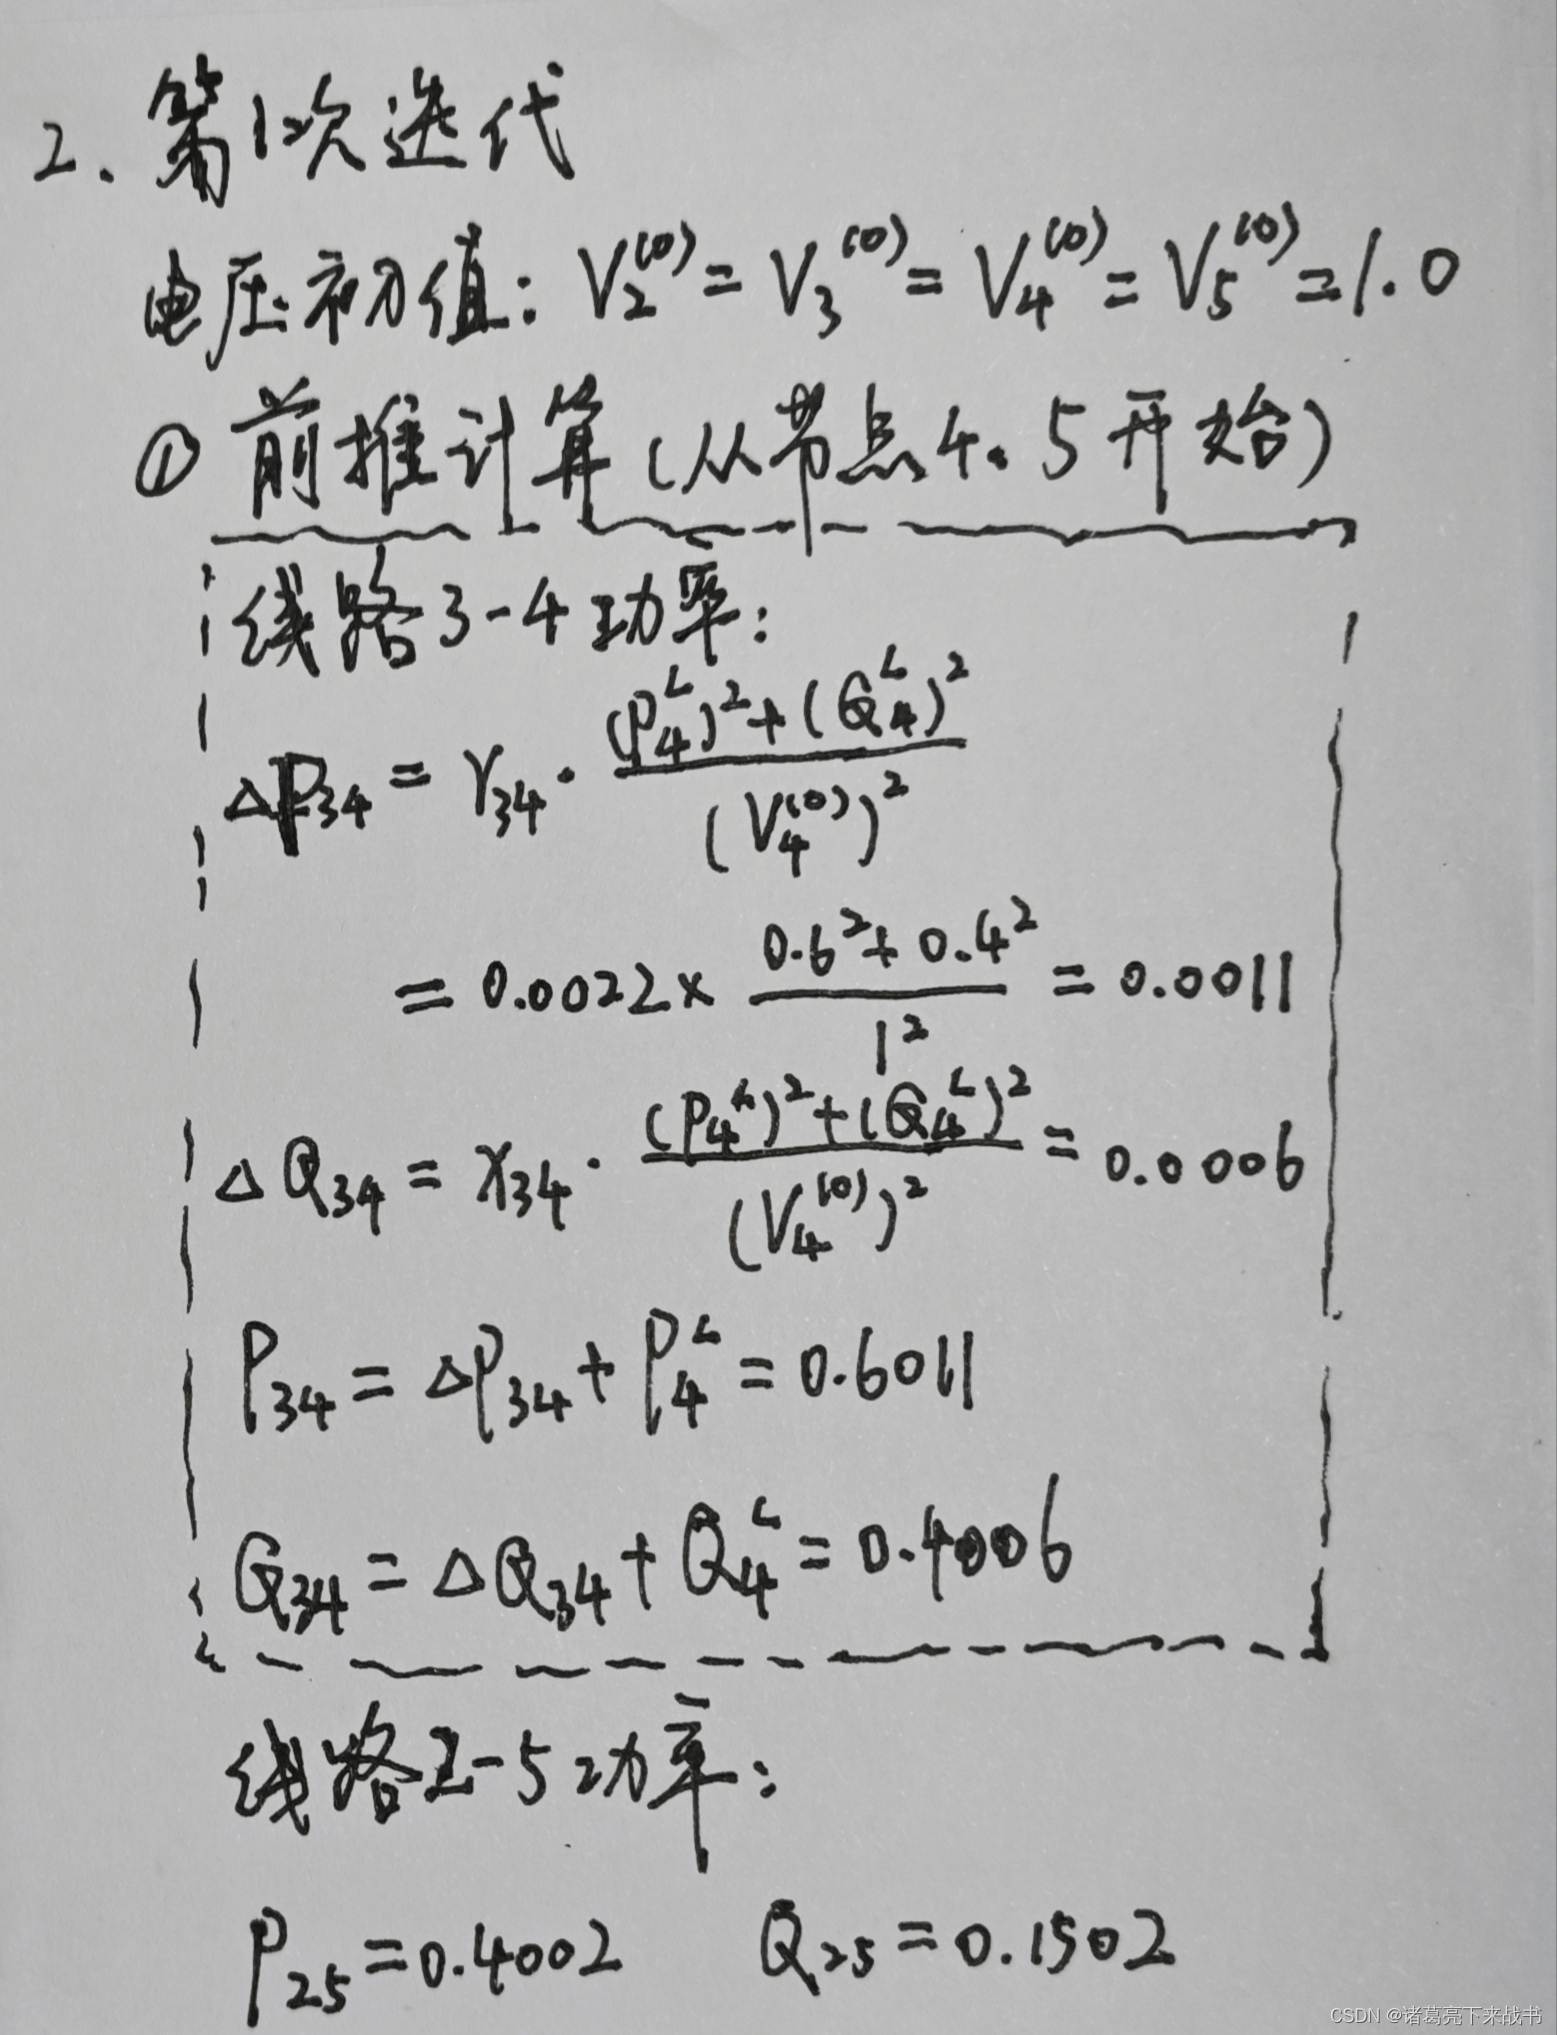 2. 第1次迭代
电压初值: V₂⁽⁰⁾ = V₃⁽⁰⁾ = V₄⁽⁰⁾ = V₅⁽⁰⁾ = 1.0
① 前推计算(从节点4、5开始)
线路3-4功率:
ΔP₃₄ = r₃₄ · ((P₄ᴸ)² + (Q₄ᴸ)²) / (V₄⁽⁰⁾)²
= 0.0022 × (0.6² + 0.4²) / 1² = 0.0011
ΔQ₃₄ = x₃₄ · ((P₄ᴸ)² + (Q₄ᴸ)²) / (V₄⁽⁰⁾)² = 0.0006
P₃₄ = ΔP₃₄ + P₄ᴸ = 0.6011
Q₃₄ = ΔQ₃₄ + Q₄ᴸ = 0.4006
线路2-5功率:
P₂₅ = 0.4002 Q₂₅ = 0.1502
CSDN @诸葛亮下来战书